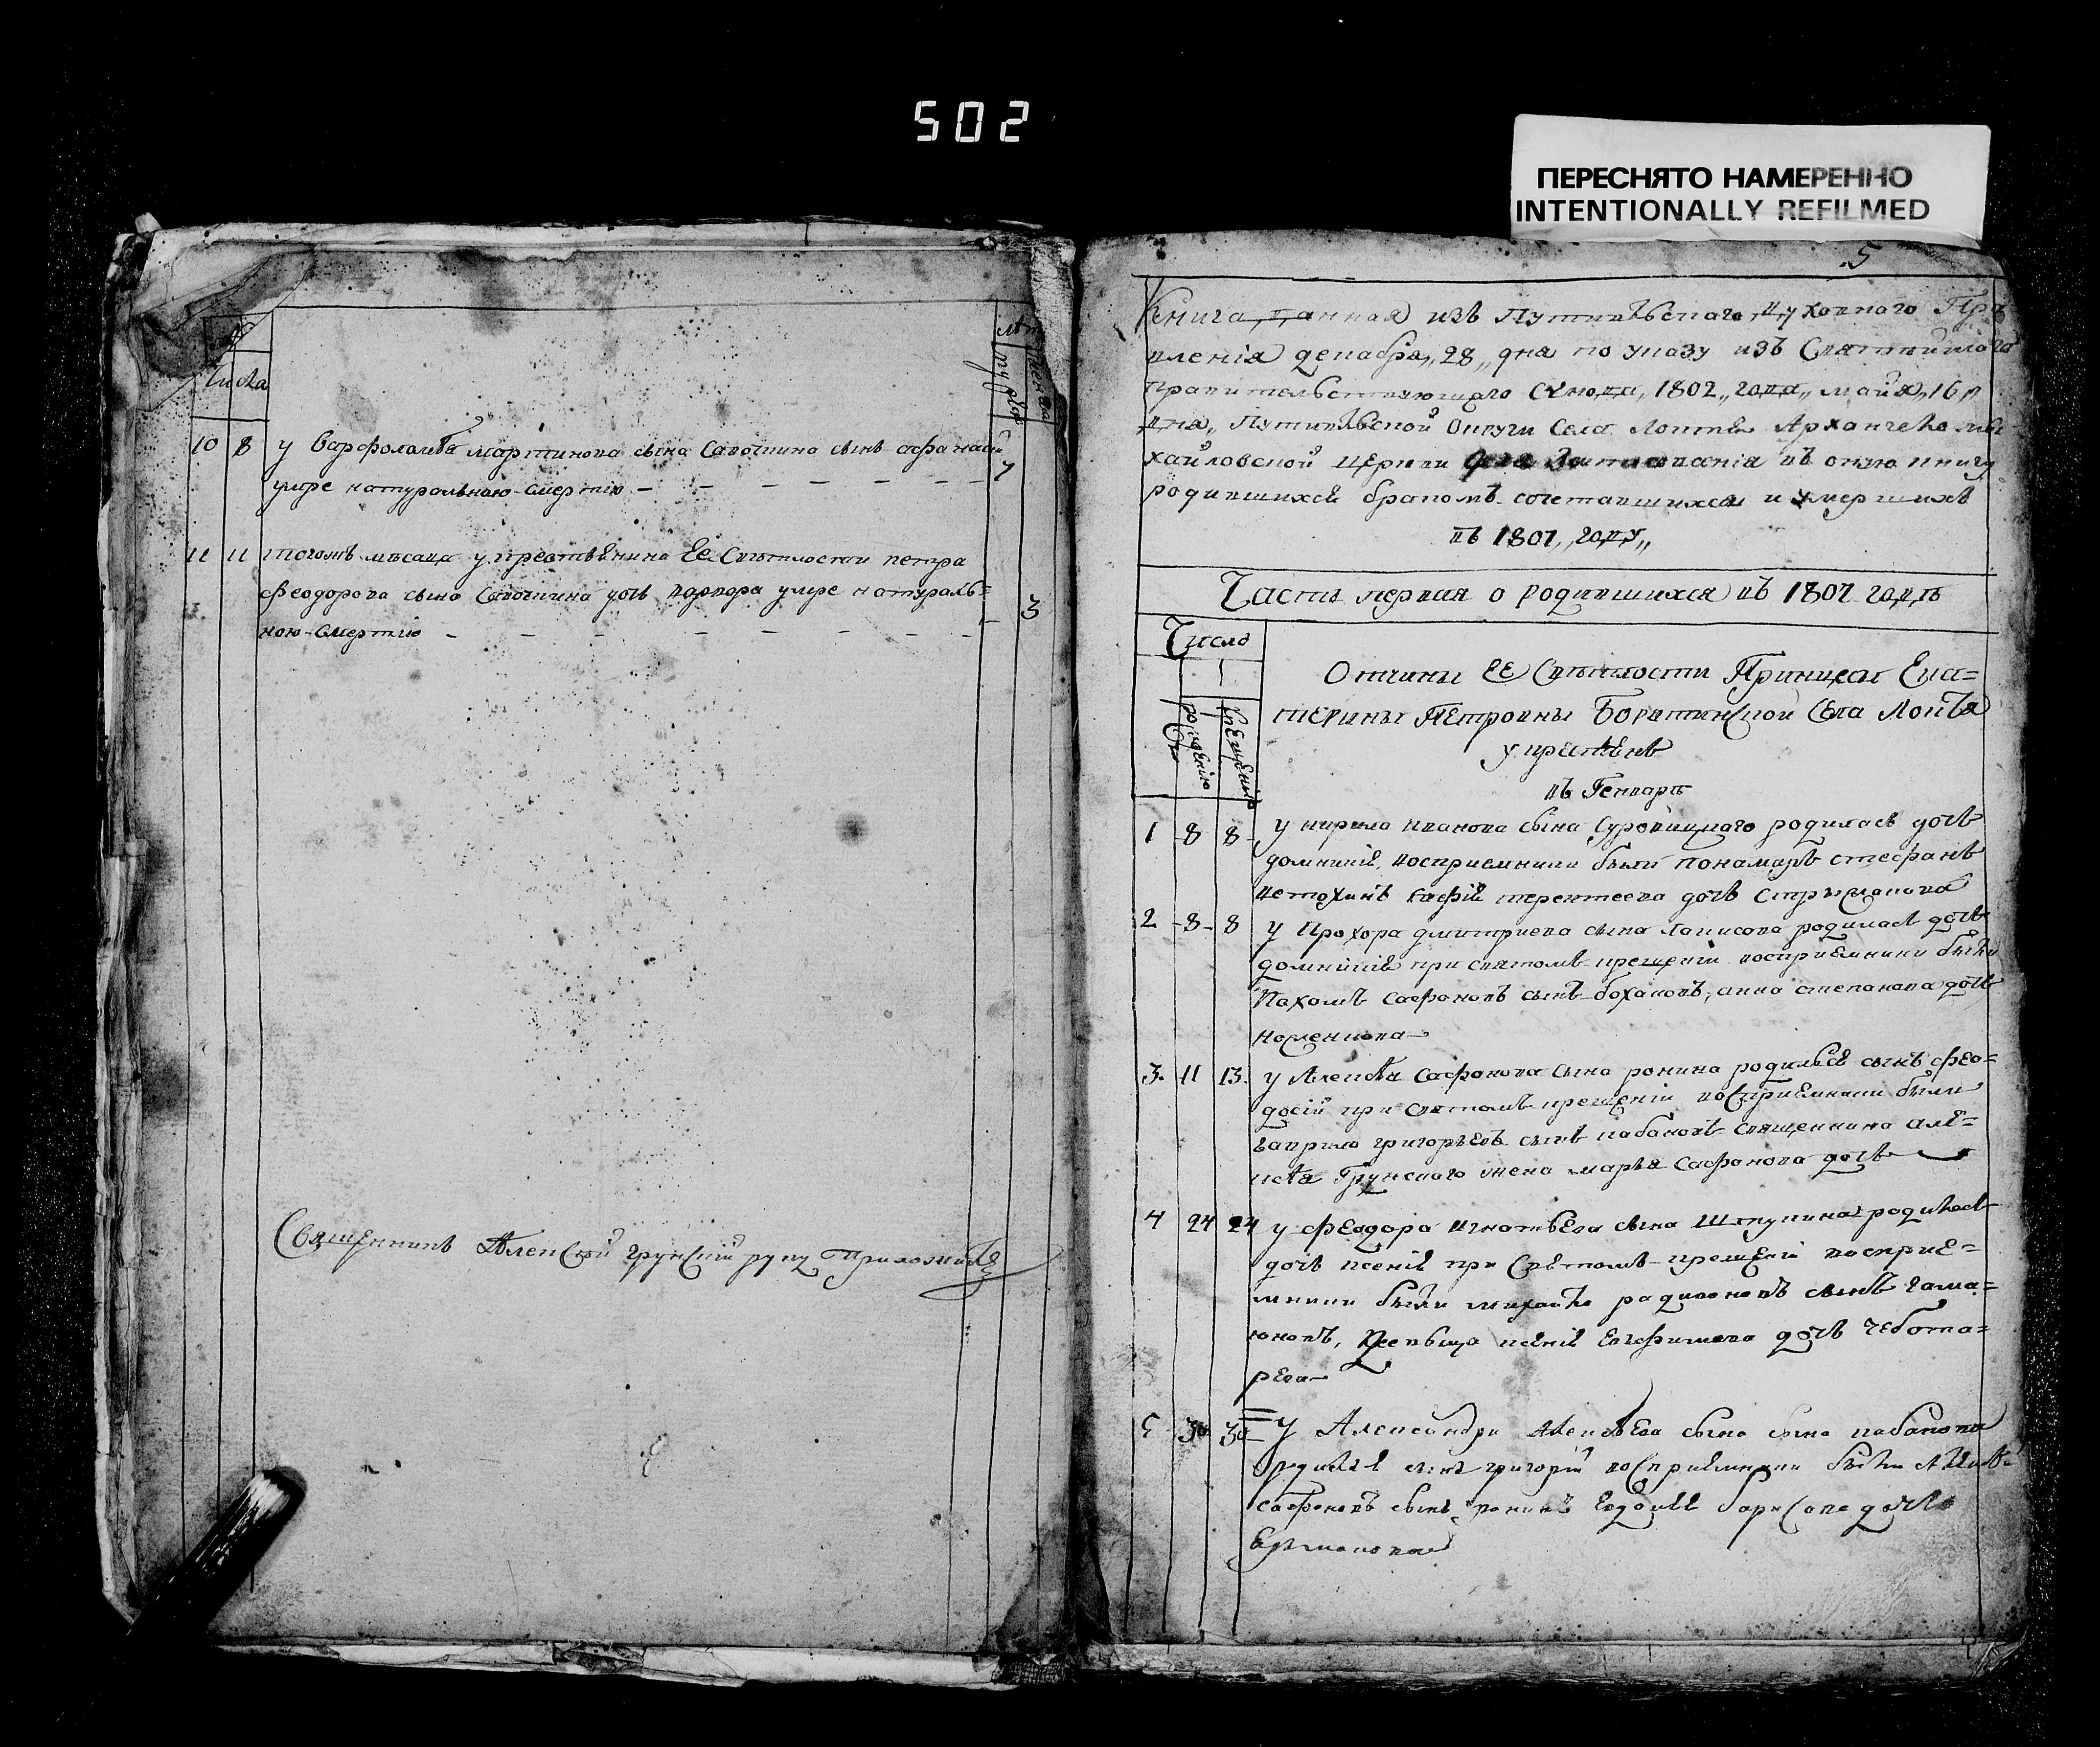 502
ПЕРЕСНЯТО НАМЕРЕННО
INTENTIONALLY REFILMED
Числа
10 8 у Варфоломѣя мартинова сына Савочкина сынъ афанасій
умре натуральною смертію — — — — — — — 7
11 11 тогожъ мѣсаца у крестьянина Ее Свѣтлости петра
феодорова сына Савочкина дочь варвара умре натураль=
ною смертію — — — — — — — — 3
Священникъ Алексѣй грунскій руку Приложилъ
5
Книга, данная изъ Путивльскаго духовнаго Пра
вленія декабря „28„ дня по указу изъ Святѣйшаго
Правительствующаго Сѵнода, 1802„ года„ майя„ 16„
дня„ Путивльской Округи Села Локтя Архангело ми
хайловской Церкви для Записанія въ оную книгу
родившихся бракомъ сочетавшихся и умершихъ
въ 1802„ году„
Часть первая о родившихся въ 1802 годѣ
Число
рожденію
крещенію
Отчины ЕЕ Свѣтлости Принцесы Ека=
терины Петровны Борятинской Села Локтя
у крестьянъ
въ Генварѣ
1 8 8 у кирила иванова сына Суровицкаго родилась дочь
домникія, восприемники были понамарь стефанъ
терентеева дочь
2 8 8 у Прохора дмитриева сына родилась дочь
домникія при святомъ крещеніи восприемники были
Пахомъ сафоновъ сынъ бохановъ, анна степанова дочь

3. 11 13. у Алексѣя Сафонова сына ронина родился сынъ фео=
досій при святомъ крещеніи восприемники были
гаврило григорьевъ сынъ кабановъ священника але=
ксѣя Грунскаго жена марья Сафонова дочь
4 24 24 у феодора игнатьева сына Шкупина родилась
дочь ксенія при Святомъ крещеніи восприе=
мники были михайло радионовъ сынъ гама=
юновъ, ксенія Евфимова дочь чебота=
рева
5 30 30 У Александра Алексѣева сына сына кабанова
родился сынъ григорій восприемники были Алексѣй
сафоновъ сынъ ронинъ борисова дочь